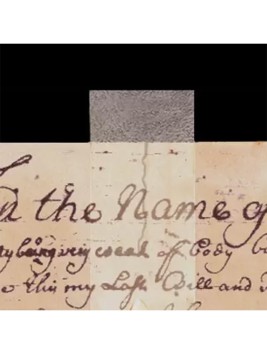 In the Name of
being very weak off Body
this my Last Will and